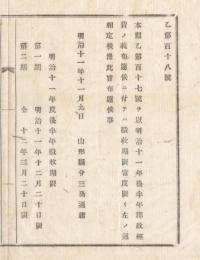 乙第百十八號
本縣乙第百十七號ヲ以明治十一年後半年郡政經
費ノ義布達候ニ付テハ徴收期限當度限リ左ノ通
相定候條此旨布達候事
明治十一年十一月九日　山形縣令三島通庸
明治十一年度後半年徴收期限
第一期　明治十一年十二月二十日限
第二期　仝　十二年三月二十日限